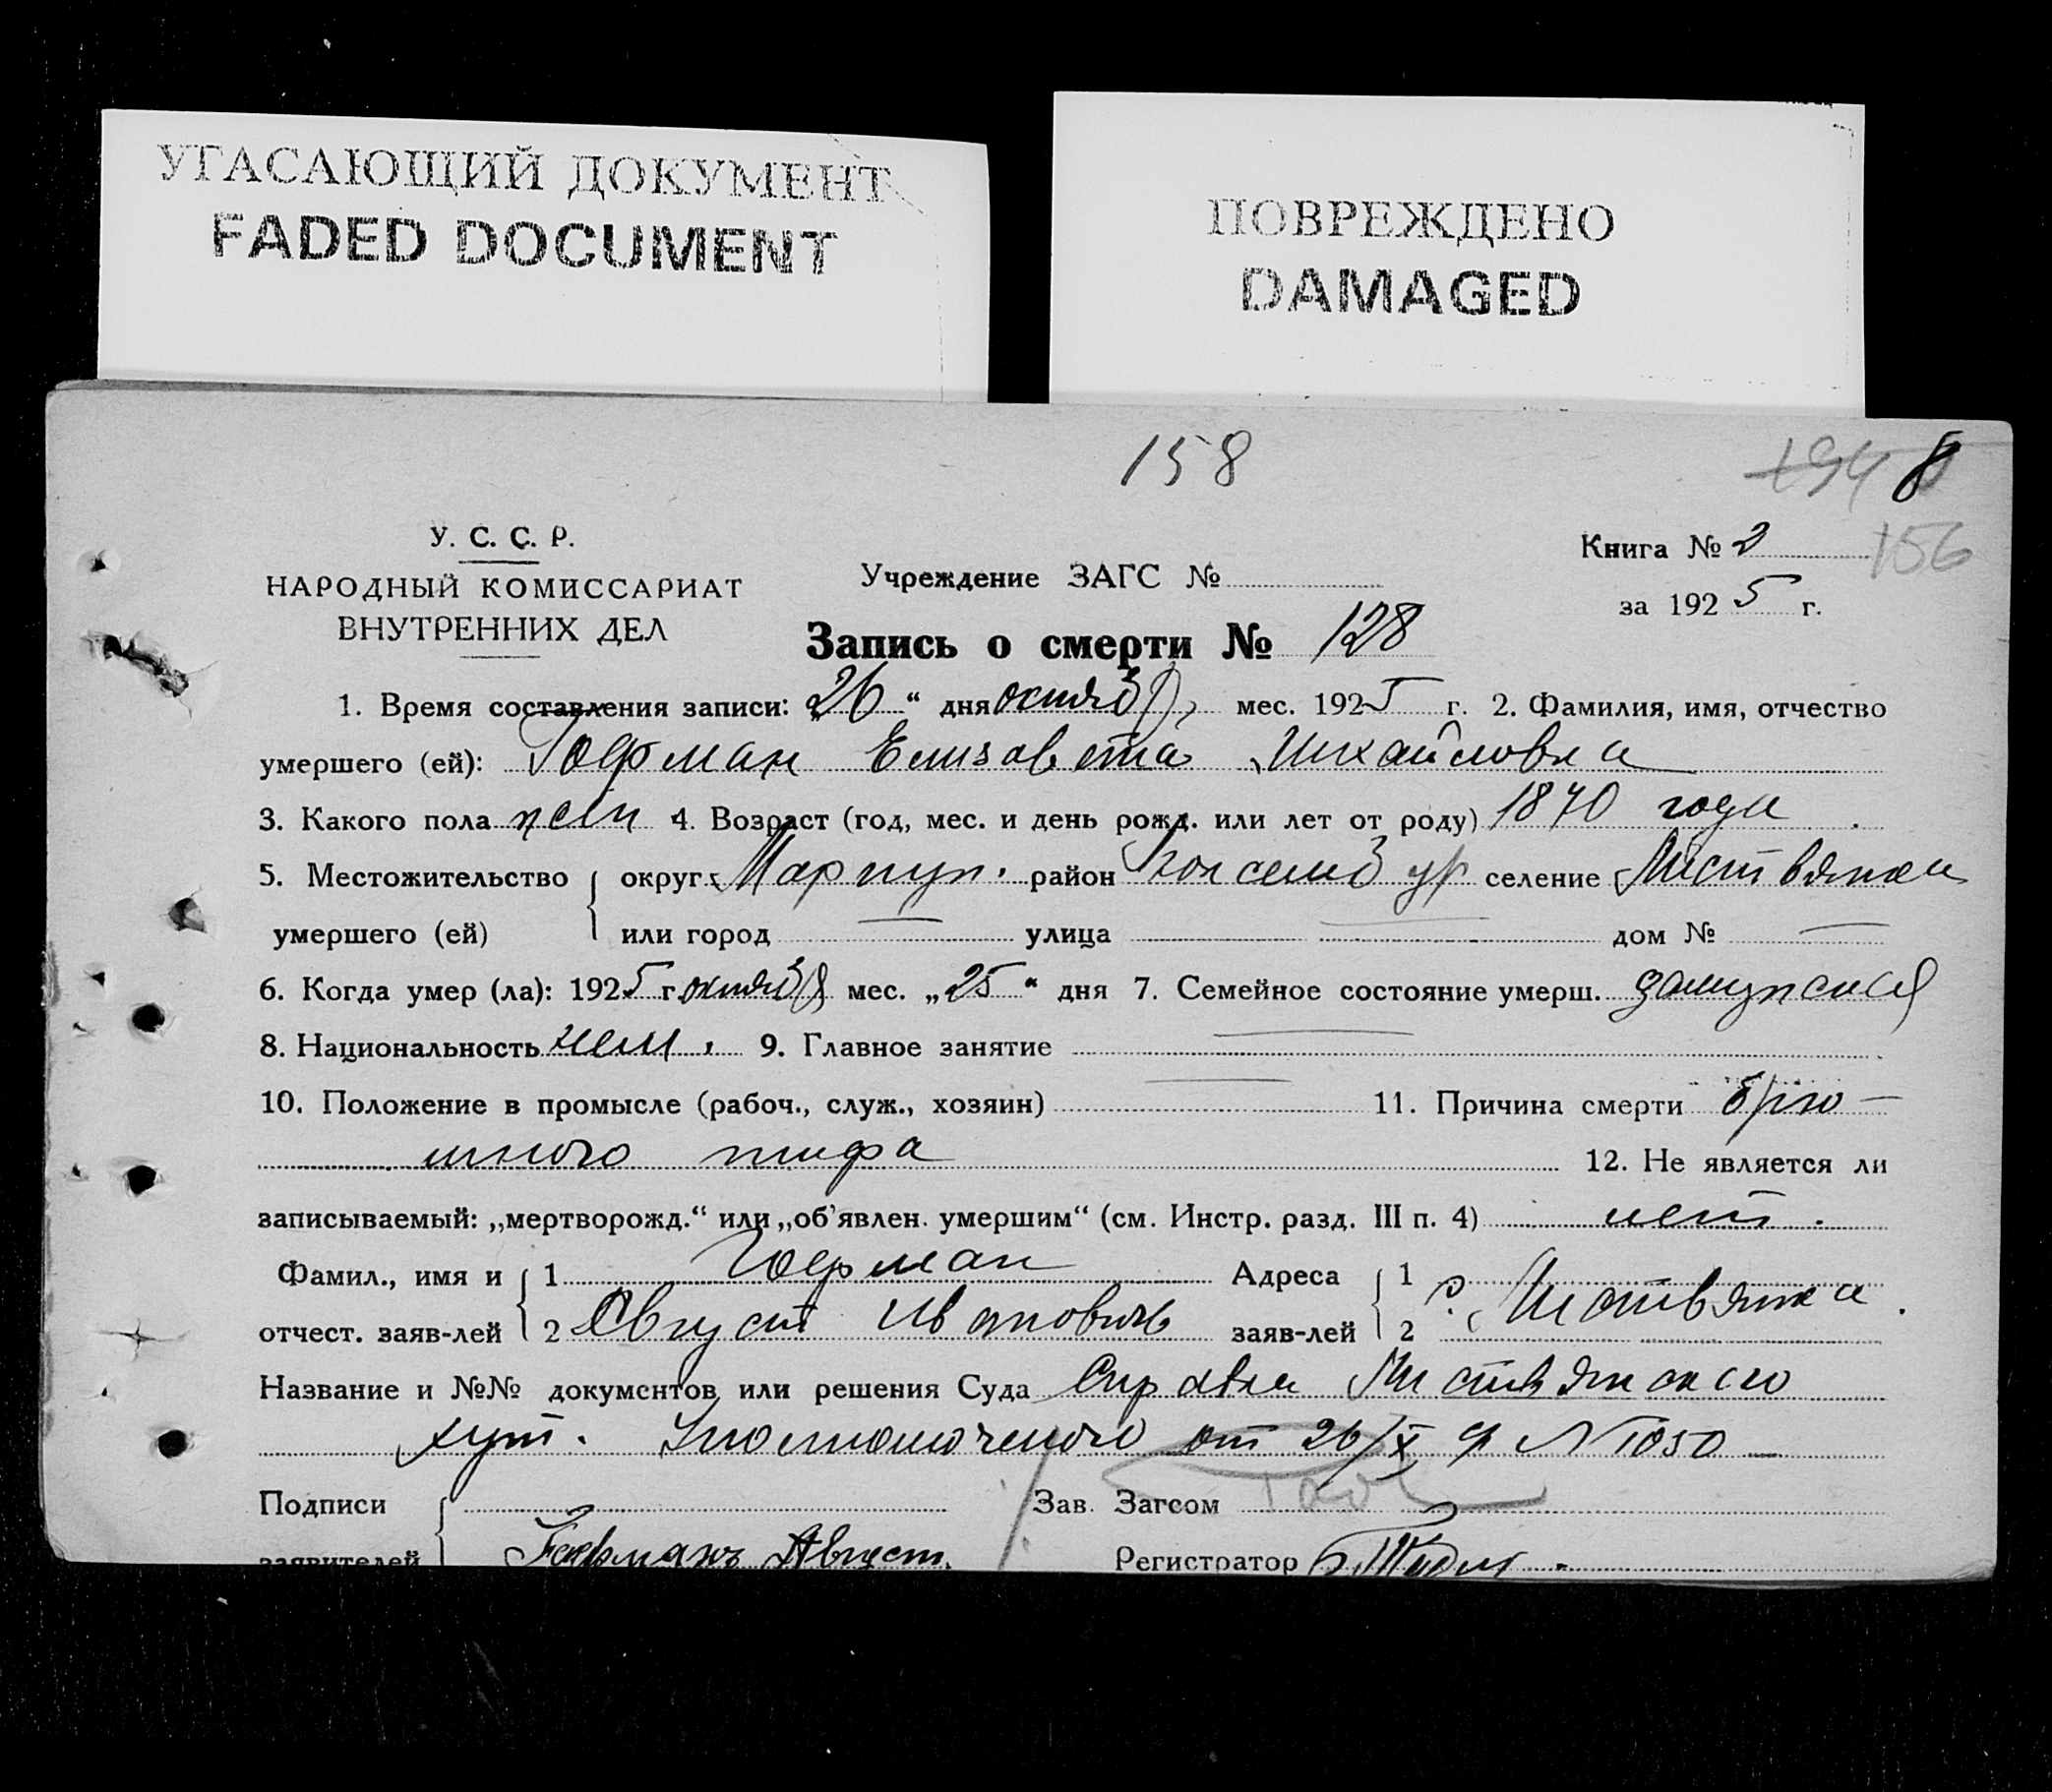 УГАСАЮЩИЙ ДОКУМЕНТ
FADED DOCUMENT
ПОВРЕЖДЕНО
DAMAGED
158
194 8
У. С. С. Р.
НАРОДНЫЙ КОМИССАРИАТ
ВНУТРЕННИХ ДЕЛ
Учреждение ЗАГС №
Книга № 2 156
за 1925 г.
Запись о смерти № 128
1. Время составления записи: 26 " дня октября мес. 1925 г. 2. Фамилия, имя, отчество
умершего (ей): Гофман Елизавета Михайловна
3. Какого пола жен 4. Возраст (год, мес. и день рожд. или лет от роду) 1870 года
5. Местожительство округ Мариуп. район селение Листвянка
умершего (ей) или город — улица — дом № —
6. Когда умер (ла): 1925 г. октября мес. „25" дня 7. Семейное состояние умерш. замужняя
8. Национальность нем. 9. Главное занятие —
10. Положение в промысле (рабоч., служ., хозяин) — 11. Причина смерти брю-
шного тифа 12. Не является ли
записываемый: „мертворожд." или „об'явлен. умершим" (см. Инстр. разд. III п. 4) нет.
Фамил., имя и 1 Гофман Адреса 1
отчест. заяв-лей 2 Август Иванович заяв-лей 2 Листвянка.
Название и №№ документов или решения Суда Справка Листвянского
хут. Уполномоченого от 26/X № 1050
Подписи Зав. Загсом
заявителей Гофманъ Август. Регистратор